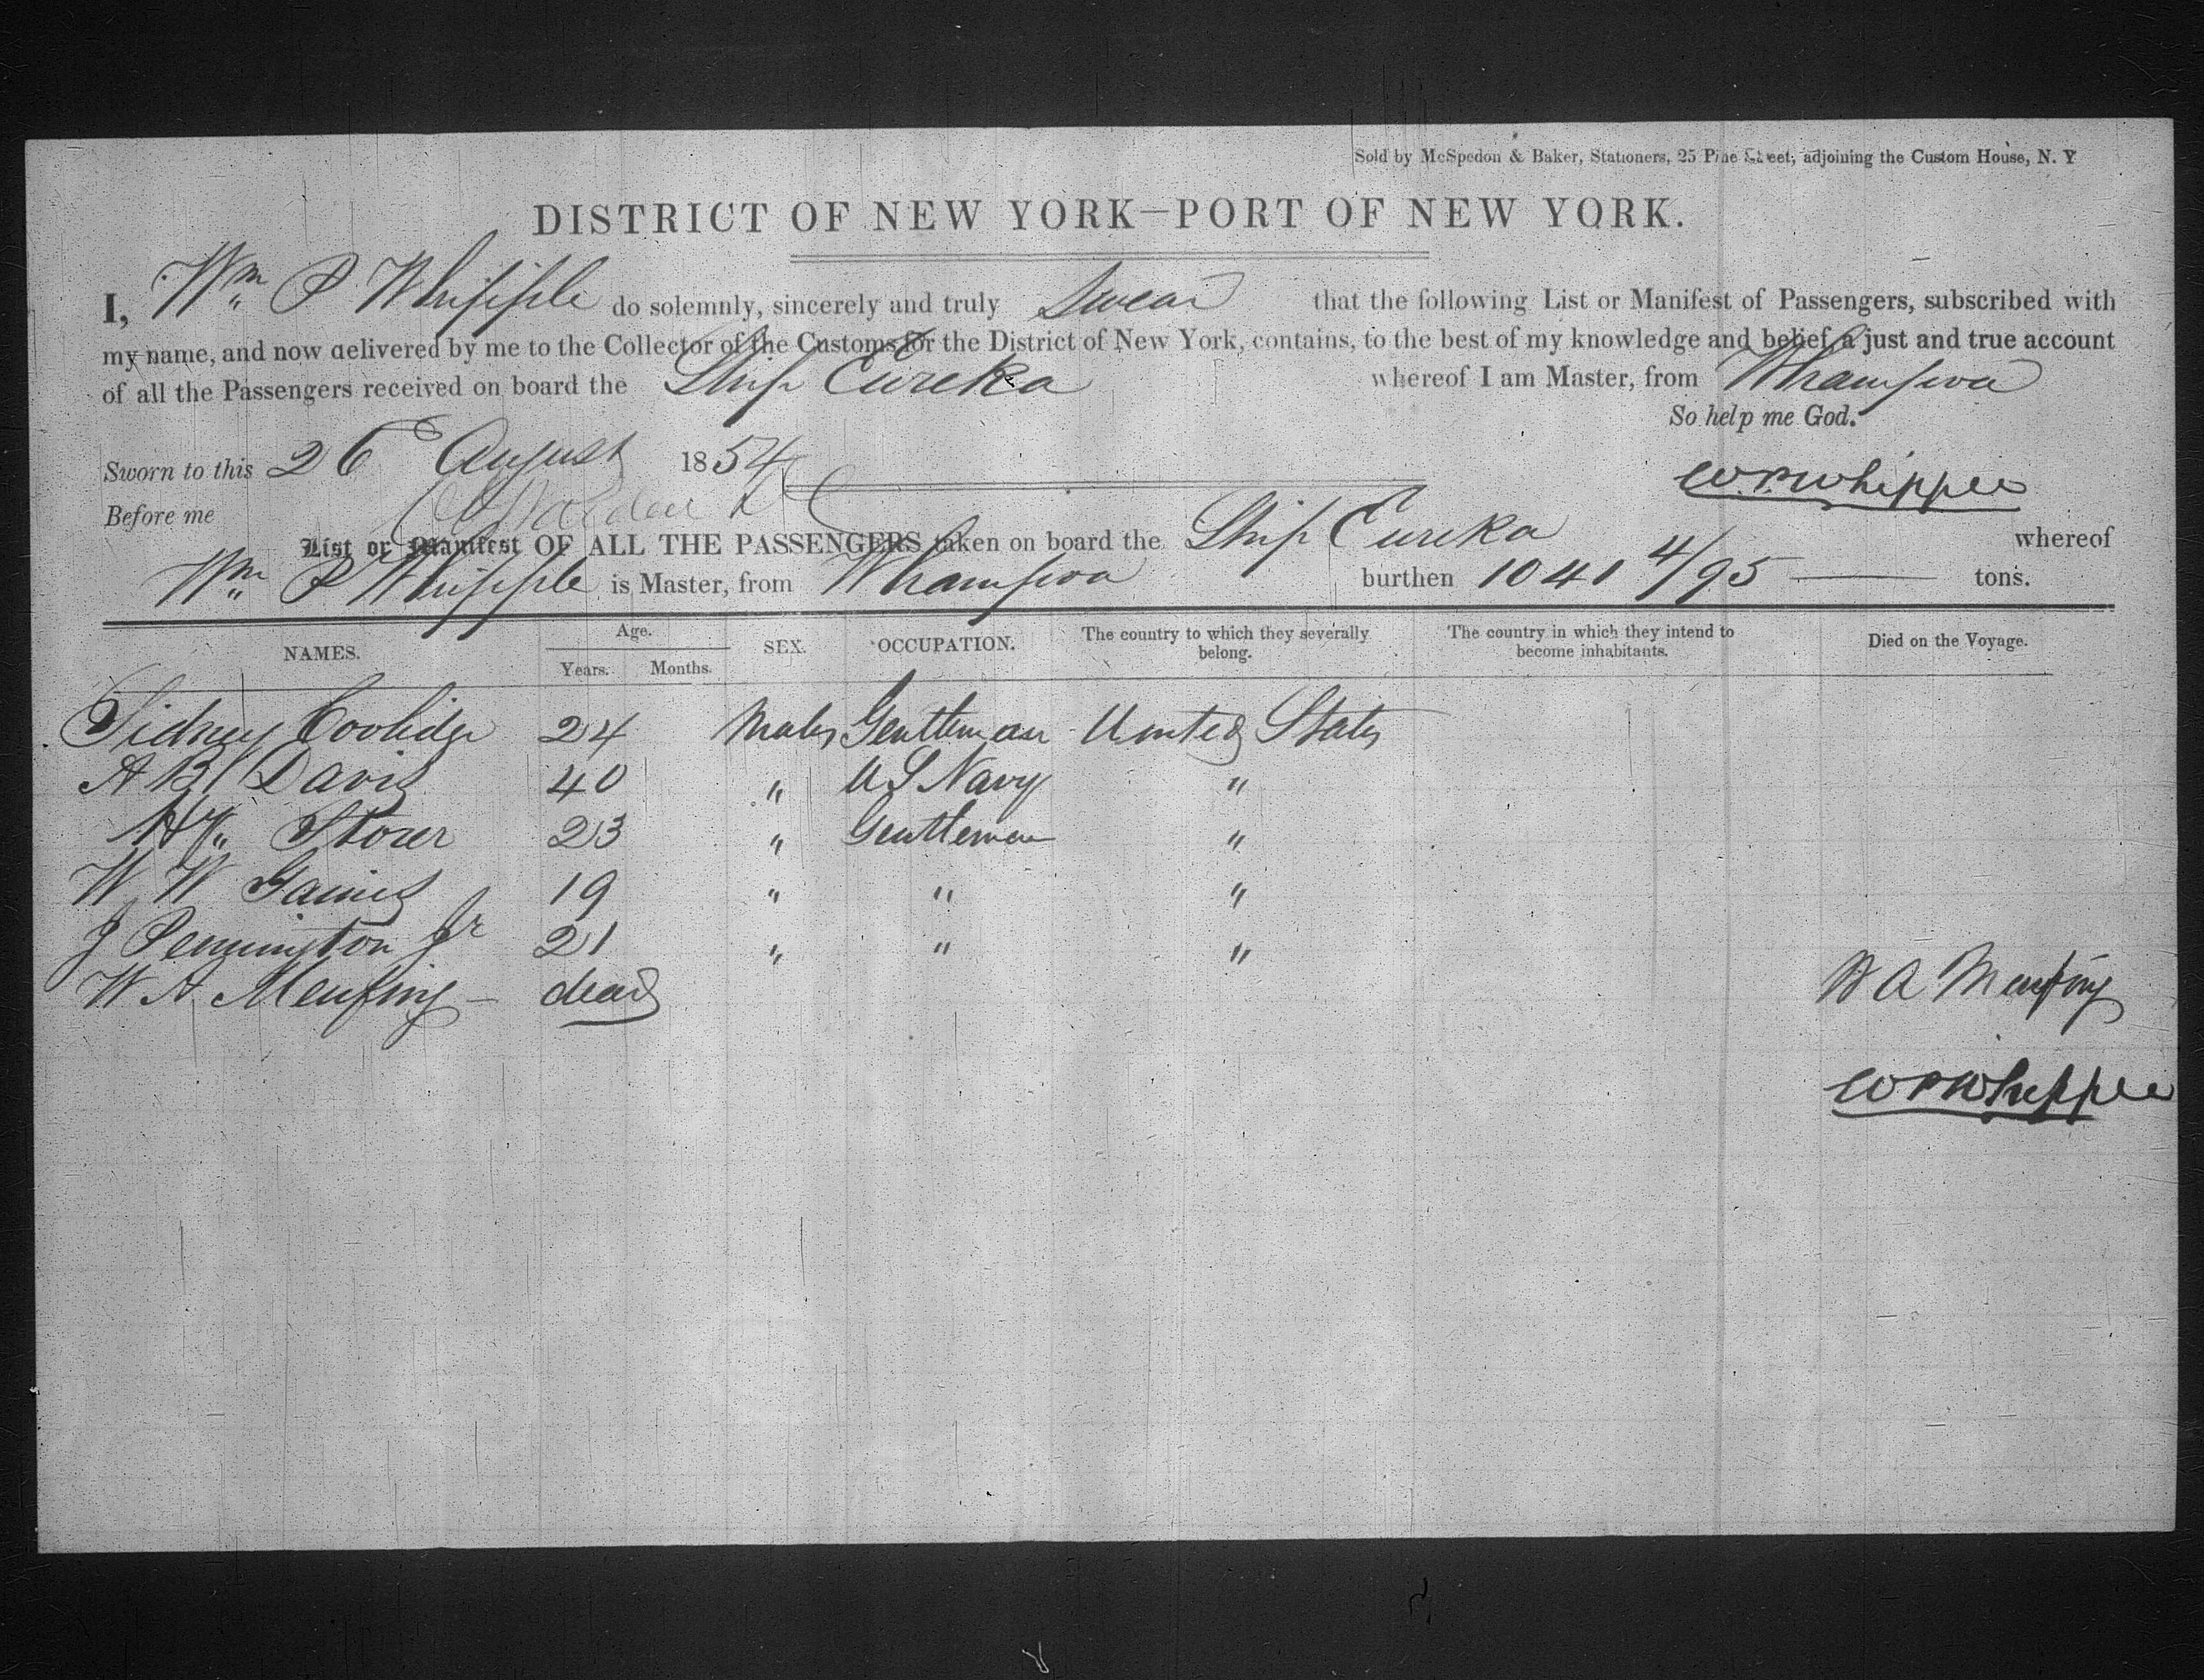 Sold by McSpedon & Baker, Stationers, 25 Pine Street, adjoining the Custom House, N. Y
DISTRICT OF NEW YORK—PORT OF NEW YORK.
I, Wm P Whipple do solemnly, sincerely and truly Swear that the following List or Manifest of Passengers, subscribed with
my name, and now delivered by me to the Collector of the Customs for the District of New York, contains, to the best of my knowledge and belief, a just and true account
of all the Passengers received on board the Ship Eureka whereof I am Master, from Whampoa
So help me God.
Sworn to this 26 August 1854
W. P. Whipple
Before me
List or Manifest OF ALL THE PASSENGERS taken on board the Ship Eureka whereof
Wm P Whipple is Master, from Whampoa burthen 1041 4/95 tons.
NAMES. Age. Years. Months. SEX. OCCUPATION. The country to which they severally belong. The country in which they intend to become inhabitants. Died on the Voyage.
Sidney Coolidge 24 Males Gentleman United States
A B Davis 40 " U S Navy "
Hy Storer 23 " Gentleman "
W W Gaines 19 " " "
J Pennington Jr 21 " " "
W A dead W A
W P Whipple